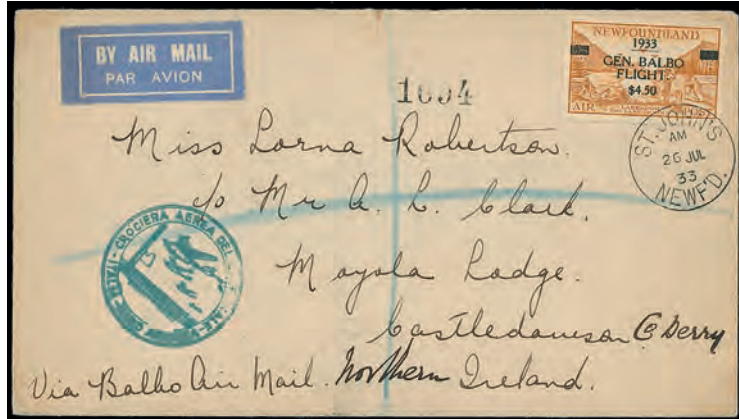 BY AIR MAIL
PAR AVION
NEWFOUNDLAND
1933
GEN. BALBO
FLIGHT.
$4.50
AIR
1094
ST. JOHN'S
AM
26 JUL
33
NEWF'D.
Miss Lorna Robertson.
c/o Mr A. L. Clark.
Moyola Lodge.
Castledawson Co Derry
Northern Ireland.
Via Balbo Air Mail.
CROCIERA AEREA DEL